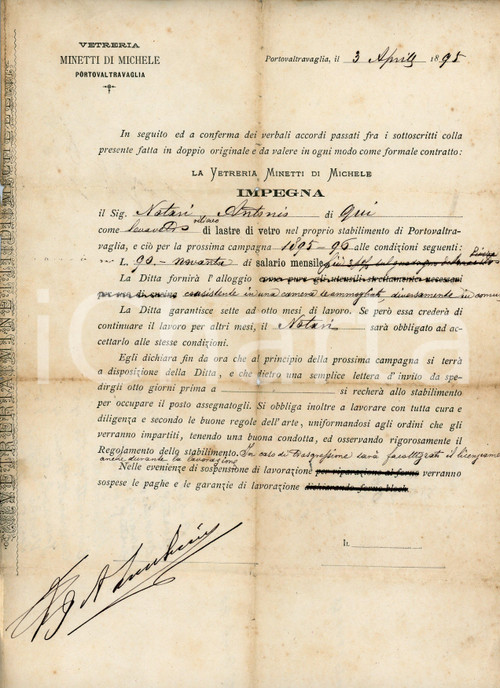 VETRERIA
MINETTI DI MICHELE
PORTOVALTRAVAGLIA
Portovaltravaglia, il 3 Aprile 1895
In seguito ed a conferma dei verbali accordi passati fra i sottoscritti colla
presente fatta in doppio originale e da valere in ogni modo come formale contratto:
LA VETRERIA MINETTI DI MICHELE
IMPEGNA
il Sig. Notari Antonio di qui
come di lastre di vetro nel proprio stabilimento di Portovaltra-
vaglia, e ciò per la prossima campagna 1895-96 alle condizioni seguenti:
L. 90 - novanta di salario mensile
La Ditta fornirà l'alloggio
consistente in una camera ammogliati, diversamente in comune
La Ditta garantisce sette ad otto mesi di lavoro. Se però essa crederà di
continuare il lavoro per altri mesi, il Notari sarà obbligato ad ac-
cettarlo alle stesse condizioni.
Egli dichiara fin da ora che al principio della prossima campagna si terrà
a disposizione della Ditta, e che dietro una semplice lettera d'invito da spe-
dirgli otto giorni prima a si recherà allo stabilimento
per occupare il posto assegnatogli. Si obbliga inoltre a lavorare con tutta cura e
diligenza e secondo le buone regole dell'arte, uniformandosi agli ordini che gli
verranno impartiti, tenendo una buona condotta, ed osservando rigorosamente il
Regolamento dello stabilimento. In caso di trasgressione sarà facoltizzato il licenziamento
anche durante la lavorazione
Nelle evenienze di sospensione di lavorazione per riparazione al forno verranno
sospese le paghe e le garanzie di lavorazione
Il